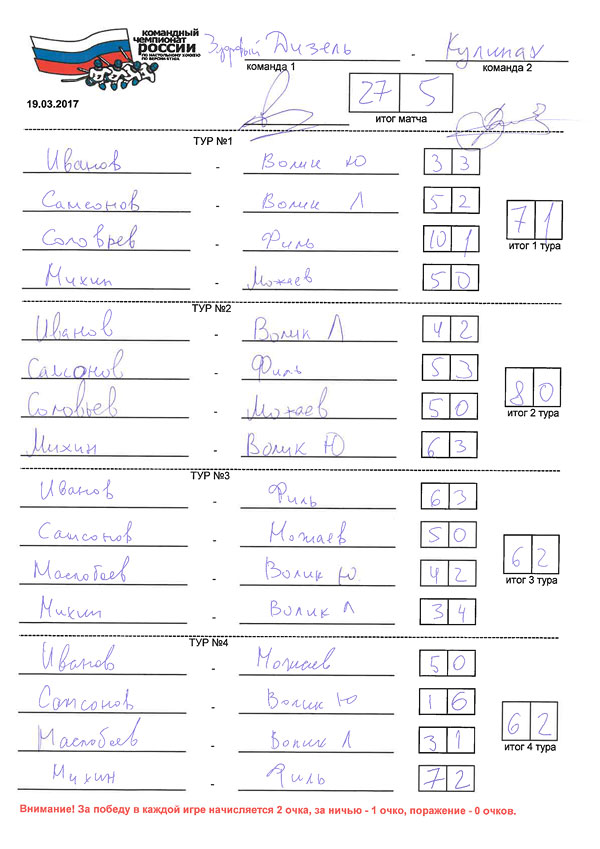 КОМАНДНЫЙ
ЧЕМПИОНАТ
РОССИИ
ПО НАСТОЛЬНОМУ ХОККЕЮ
ПО ВЕРСИИ СТИГА
Здоровый Дизель - Кулинах
команда 1 команда 2
27 5
итог матча
19.03.2017
ТУР №1
Иванов - Волик Ю 3 3
Самсонов - Волик Л 5 2
Соловьев - Филь 10 1
Михин - Можаев 5 0
7 1
итог 1 тура
ТУР №2
Иванов - Волик Л 4 2
Самсонов - Филь 5 3
Соловьев - Можаев 5 0
Михин - Волик Ю 6 3
8 0
итог 2 тура
ТУР №3
Иванов - Филь 6 3
Самсонов - Можаев 5 0
Маслобоев - Волик Ю 4 2
Михин - Волик Л 3 4
6 2
итог 3 тура
ТУР №4
Иванов - Можаев 5 0
Самсонов - Волик Ю 1 6
Маслобоев - Волик Л 3 1
Михин - Филь 7 2
6 2
итог 4 тура
Внимание! За победу в каждой игре начисляется 2 очка, за ничью - 1 очко, поражение - 0 очков.